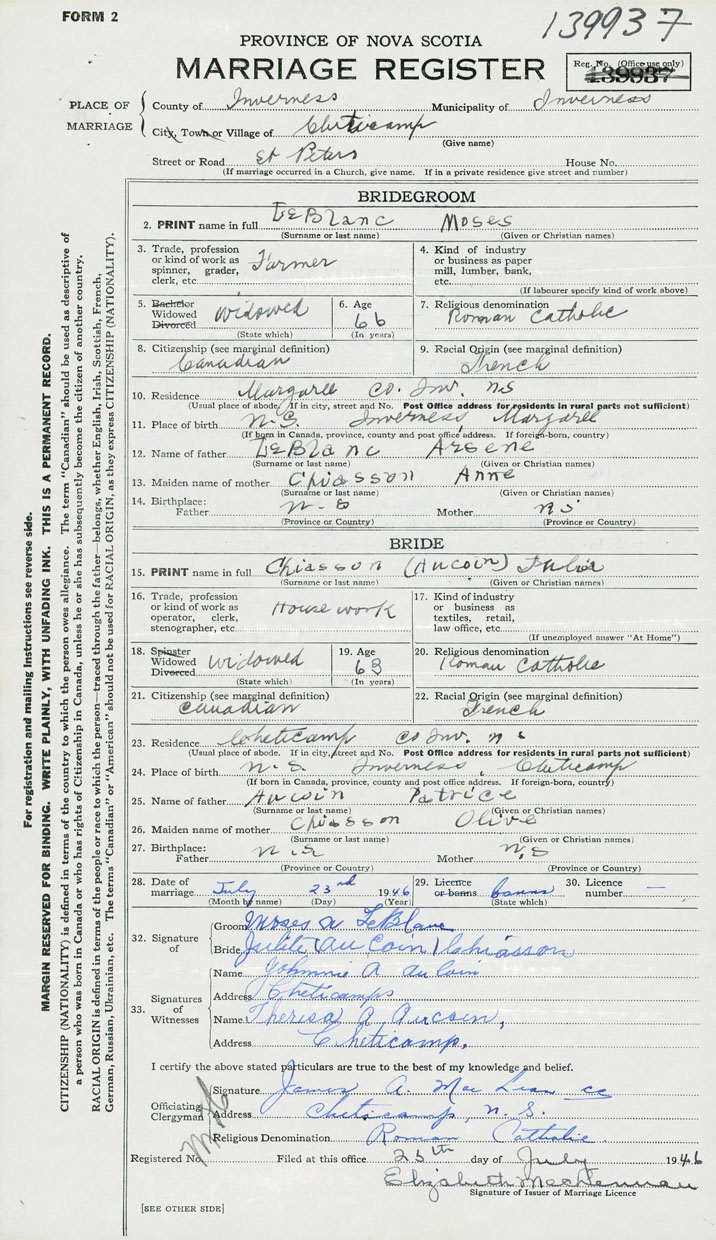 FORM 2
139937
PROVINCE OF NOVA SCOTIA
MARRIAGE REGISTER
Reg. No. (Office use only)
139937
PLACE OF MARRIAGE
County of Inverness Municipality of Inverness
City, Town or Village of Cheticamp
(Give name)
Street or Road St Peters House No.
(If marriage occurred in a Church, give name. If in a private residence give street and number)
BRIDEGROOM
2. PRINT name in full LeBlanc Moses
(Surname or last name) (Given or Christian names)
3. Trade, profession or kind of work as spinner, grader, clerk, etc. Farmer
4. Kind of industry or business as paper mill, lumber, bank, etc.
(If labourer specify kind of work above)
5. Bachelor Widowed Divorced widowed
(State which)
6. Age 66
(In years)
7. Religious denomination
Roman Catholic
8. Citizenship (see marginal definition)
Canadian
9. Racial Origin (see marginal definition)
French
10. Residence Margaree Co. Inv. NS
(Usual place of abode. If in city, street and No. Post Office address for residents in rural parts not sufficient)
11. Place of birth N.S. Inverness Margaree
(If born in Canada, province, county and post office address. If foreign-born, country)
12. Name of father LeBlanc Arsene
(Surname or last name) (Given or Christian names)
13. Maiden name of mother Chiasson Anne
(Surname or last name) (Given or Christian names)
14. Birthplace: Father N.S Mother N.S
(Province or Country) (Province or Country)
BRIDE
15. PRINT name in full Chiasson (Aucoin)
(Surname or last name) (Given or Christian names)
16. Trade, profession or kind of work as operator, clerk, stenographer, etc. House work
17. Kind of industry or business as textiles, retail, law office, etc.
(If unemployed answer "At Home")
18. Spinster Widowed Divorced widowed
(State which)
19. Age 63
(In years)
20. Religious denomination
Roman Catholic
21. Citizenship (see marginal definition)
Canadian
22. Racial Origin (see marginal definition)
French
23. Residence Cheticamp Co Inv. N S
(Usual place of abode. If in city, street and No. Post Office address for residents in rural parts not sufficient)
24. Place of birth N.S. Inverness, Cheticamp
(If born in Canada, province, county and post office address. If foreign-born, country)
25. Name of father Aucoin Patrice
(Surname or last name) (Given or Christian names)
26. Maiden name of mother Chiasson Olive
(Surname or last name) (Given or Christian names)
27. Birthplace: Father N.S Mother N.S
(Province or Country) (Province or Country)
28. Date of marriage July 23rd 1946
(Month by name) (Day) (Year)
29. Licence or banns banns
(State which)
30. Licence number —
32. Signature of
Groom Moses A LeBlanc
Bride Julite (AuCoin) Chiasson
33. Signatures of Witnesses
Name Johnnie A AuCoin
Address Cheticamps
Name Theresa A. Aucoin,
Address Cheticamp.
I certify the above stated particulars are true to the best of my knowledge and belief.
Officiating Clergyman
Signature James A. MacLean cc
Address Cheticamp, N.S.
Religious Denomination Roman Catholic.
Registered No. Filed at this office 25th day of July 1946
Elizabeth MacLennan
Signature of Issuer of Marriage Licence
[SEE OTHER SIDE]
For registration and mailing instructions see reverse side.
MARGIN RESERVED FOR BINDING. WRITE PLAINLY, WITH UNFADING INK. THIS IS A PERMANENT RECORD.
CITIZENSHIP (NATIONALITY) is defined in terms of the country to which the person owes allegiance. The term "Canadian" should be used as descriptive of
a person who was born in Canada or who has rights of Citizenship in Canada, unless he or she has subsequently become the citizen of another country.
RACIAL ORIGIN is defined in terms of the people or race to which the person—traced through the father—belongs, whether English, Irish, Scottish, French,
German, Russian, Ukrainian, etc. The terms "Canadian" or "American" should not be used for RACIAL ORIGIN, as they express CITIZENSHIP (NATIONALITY).